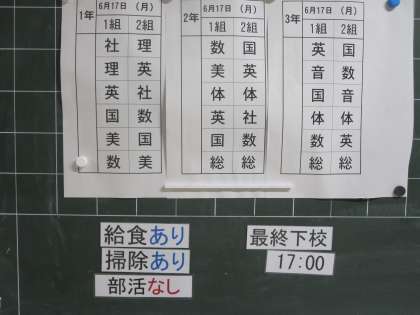 1年 6月17日 (月)
1組 2組
社 理
理 英
英 社
国 数
美 国
数 美
2年 6月17日 (月)
1組 2組
数 国
美 英
体 体
英 社
国 数
総 総
3年 6月17日 (月)
1組 2組
英 国
音 数
国 音
体 体
数 英
総 総
給食あり
掃除あり
部活なし
最終下校
17:00